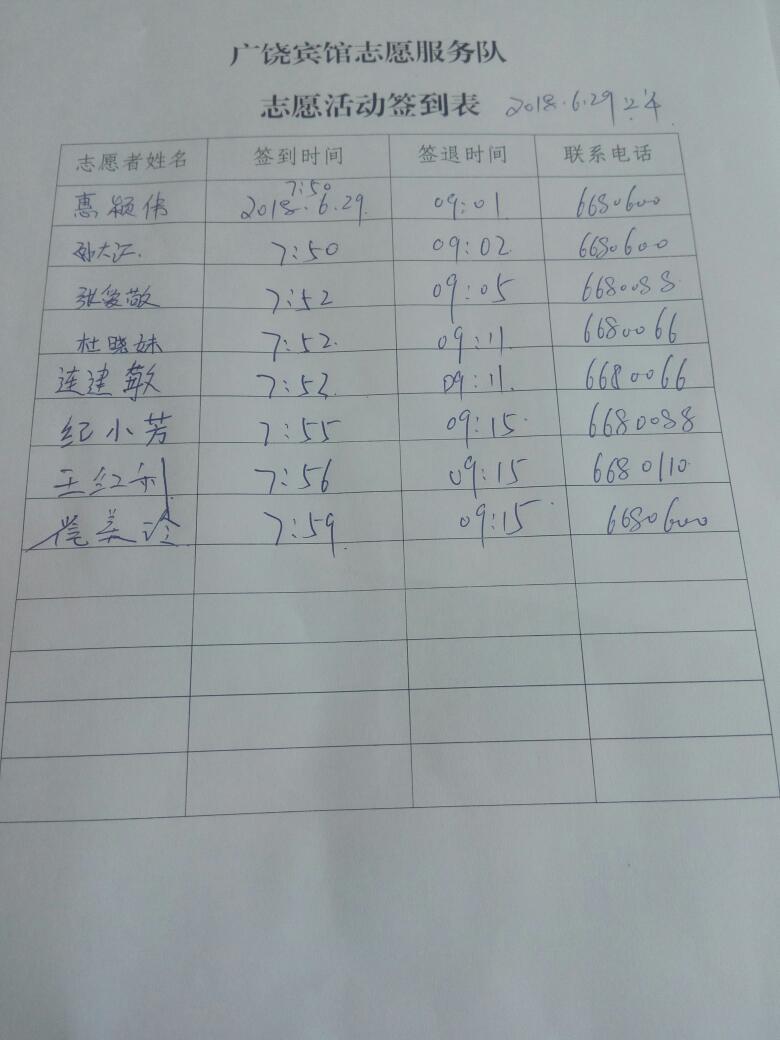 广饶宾馆志愿服务队
志愿活动签到表 2018.6.29 上午
志愿者姓名 签到时间 签退时间 联系电话
惠颖伟 7:50 2018.6.29 09:01 6680600
孙大江 7:50 09:02 6680600
张爱敬 7:52 09:05 6680088
杜晓妹 7:52 09:11 6680066
连建敏 7:52 09:11 6680066
纪小芳 7:55 09:15 6680088
王红利 7:56 09:15 6680110
美玲 7:59 09:15 6680600